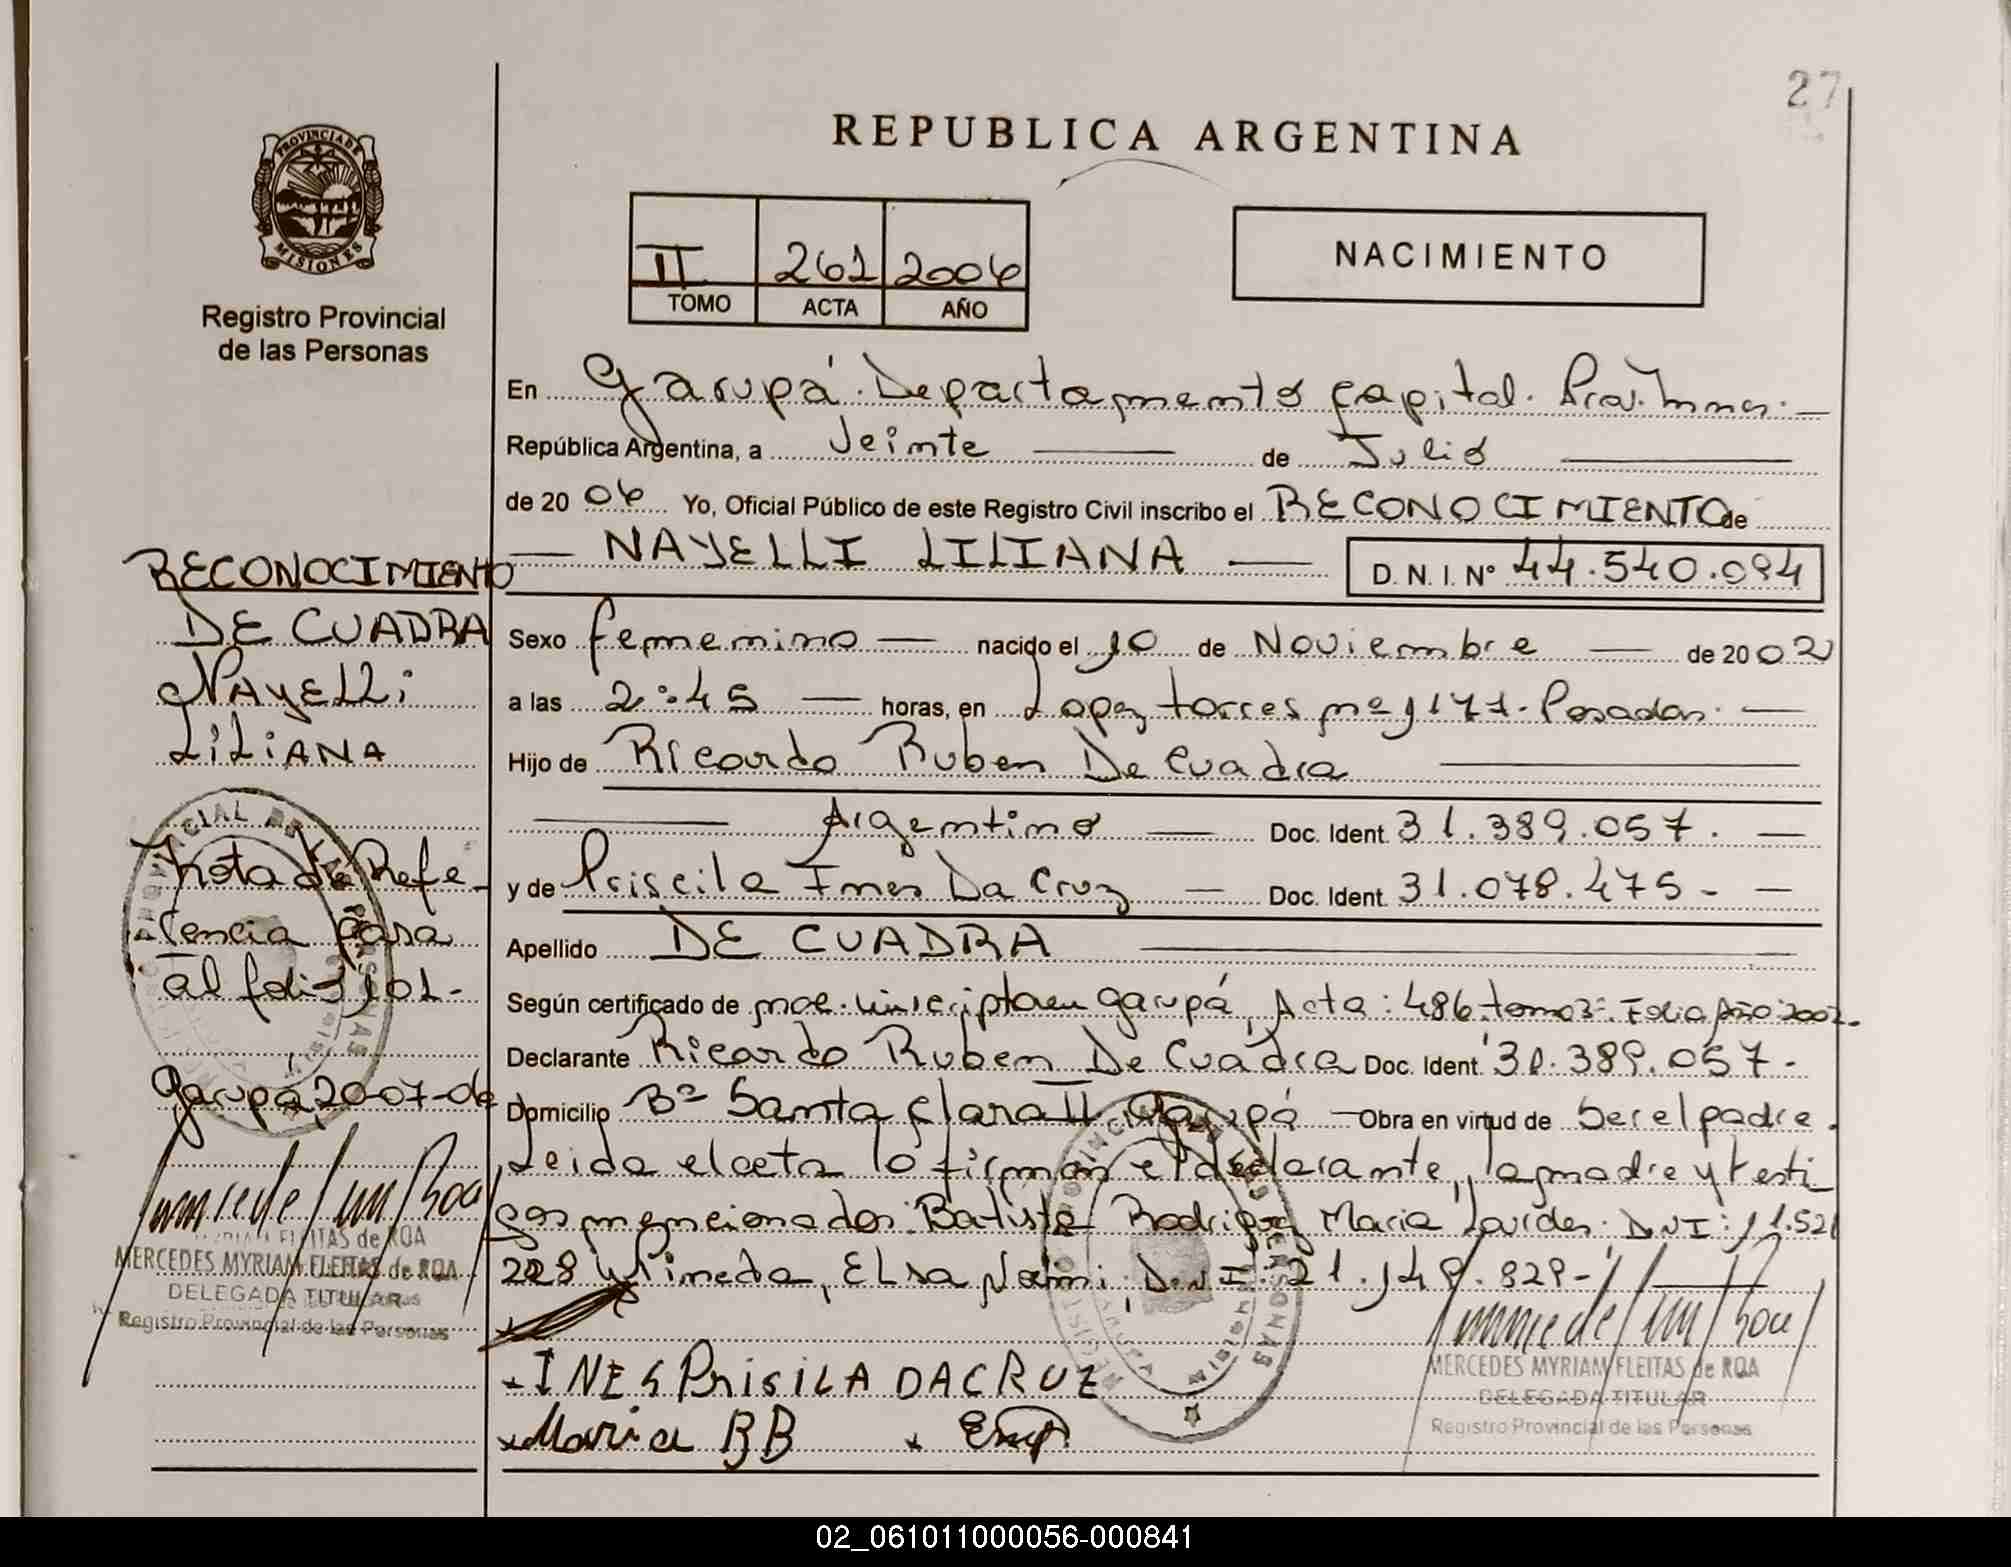 27
REPUBLICA ARGENTINA
PROVINCIA DE
MISIONES
Registro Provincial
de las Personas
II 261 2006
TOMO ACTA AÑO
NACIMIENTO
En Garupá. Departamento Capital. Prov. Mnes. —
República Argentina, a Veinte — de Julio —
de 20 06 Yo, Oficial Público de este Registro Civil inscribo el RECONOCIMIENTO de
— NAYELLI LILIANA — D.N.I. Nº 44.540.094
Sexo femenino — nacido el 10 de Noviembre — de 20 02
a las 2:45 — horas, en Lopez torres 1177. Posadas. —
Hijo de Ricardo Ruben De Cuadra —
— Argentino — Doc. Ident. 31.389.057. —
y de Priscila Ines Da Cruz — Doc. Ident. 31.078.475- —
Apellido DE CUADRA —
Según certificado de inscripta en garupá, Acta: 486. tomo 3: Folio Año: 2002.
Declarante Ricardo Ruben De Cuadra Doc. Ident 31.389.057-
Domicilio Bº Santa Clara II Garupá — Obra en virtud de Ser el padre.
Leida el acta lo firman el declarante, la madre y testi
gos mencionados: Batista Rodriguez Maria Lourdes: DNI: 11.521
228 y Pineda, Elsa Noemi; D.N.I: 21.149.829- —
INES PRISILA DACRUZ
Maria BB
MERCEDES MYRIAM FLEITAS de ROA
DELEGADA TITULAR
Registro Provincial de las Personas
RECONOCIMIENTO
DE CUADRA
NAYELLi
LiLiANA
Nota de Refe-
rencia para
al folio 101-
Garupá, 20-07-06
MERCEDES MYRIAM FLEITAS de ROA
DELEGADA TITULAR
Registro Provincial de las Personas
02_061011000056-000841